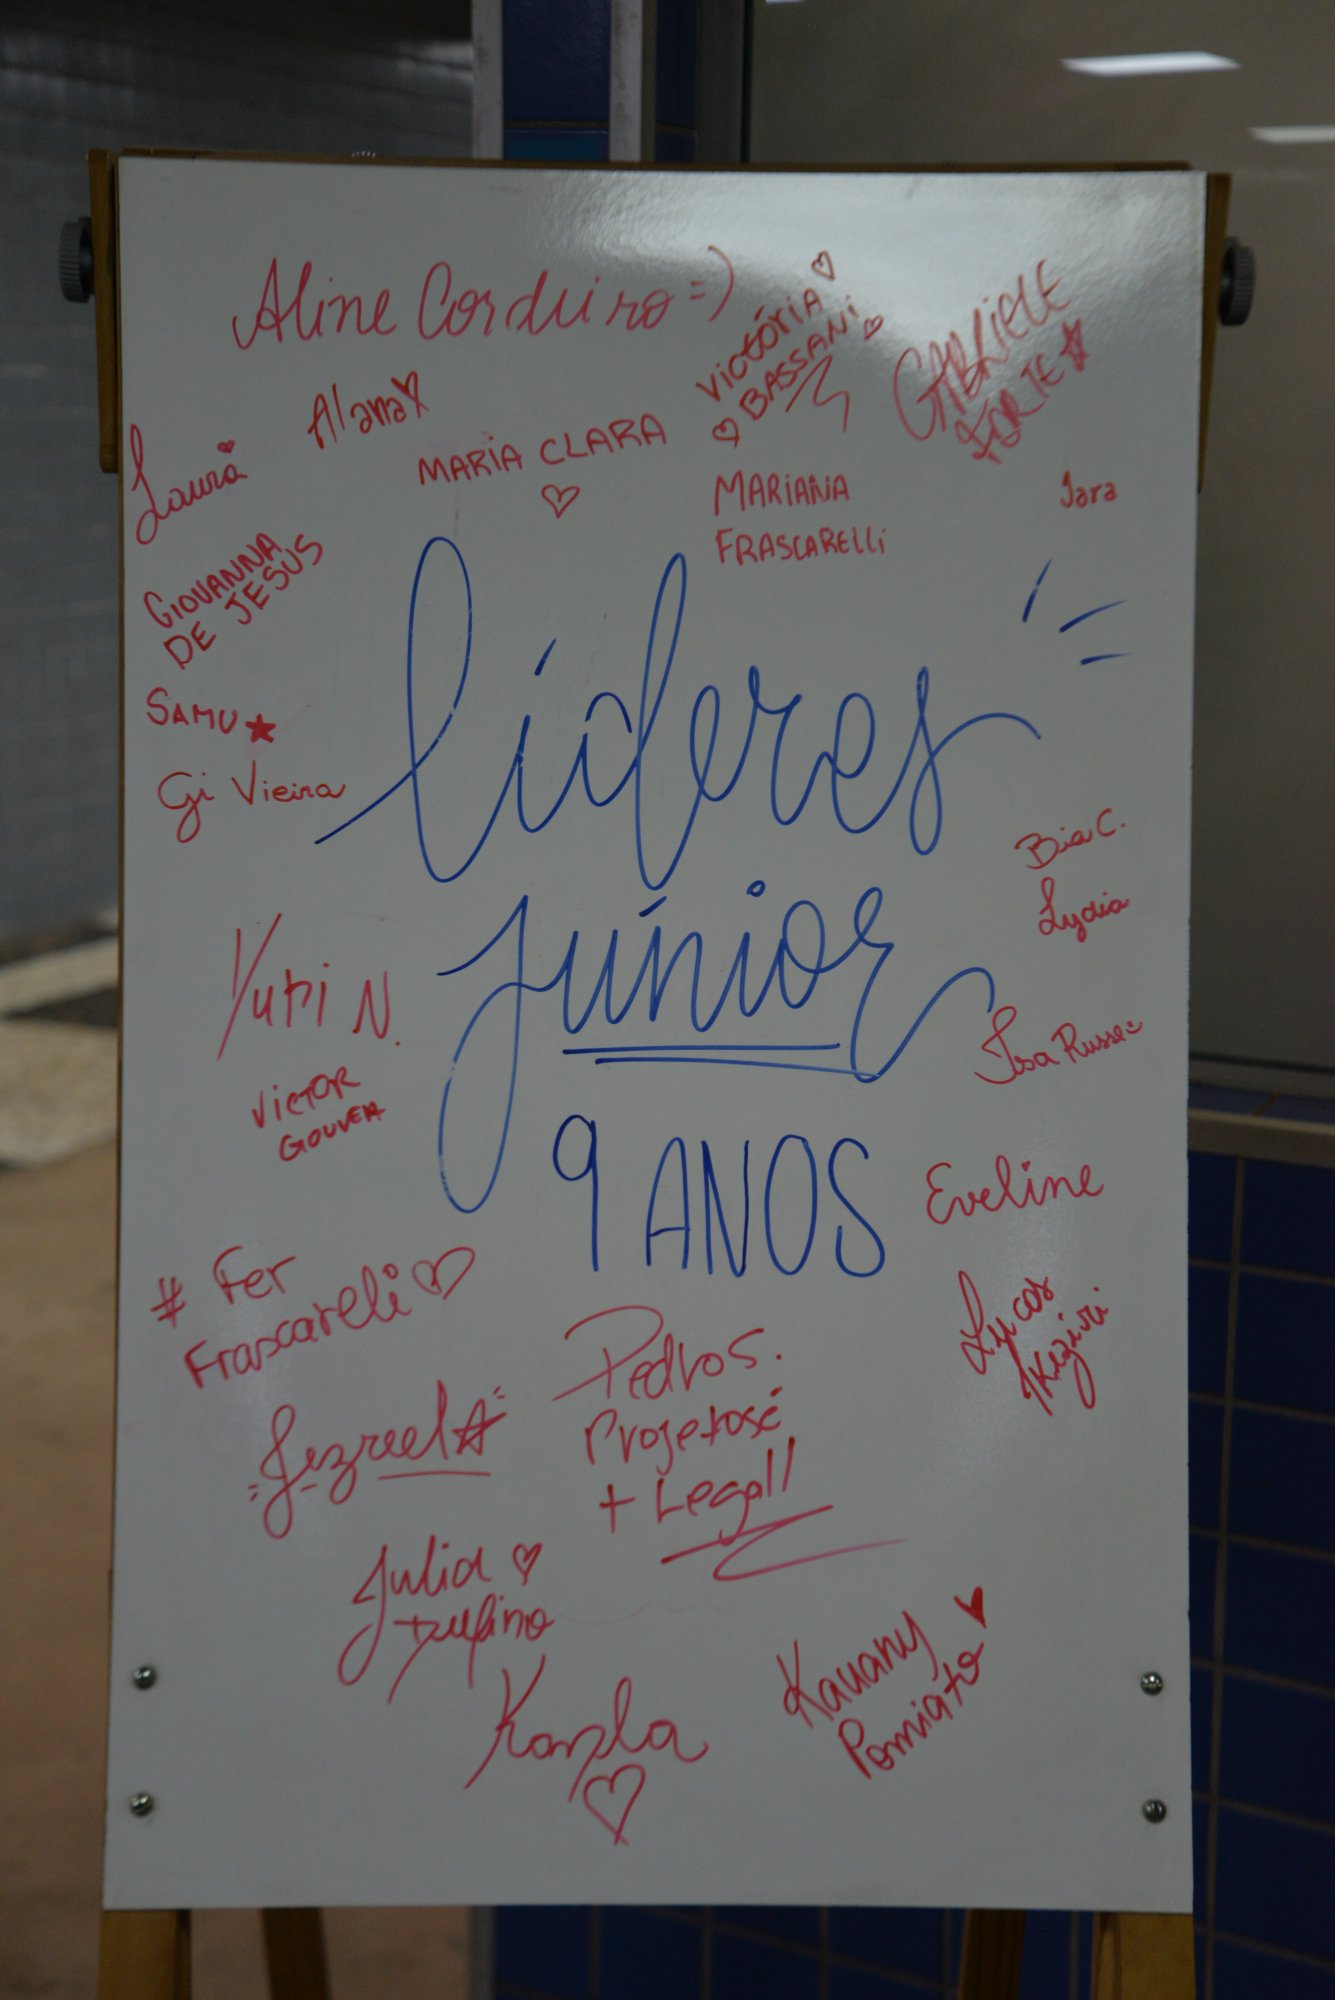 Aline Cordeiro =)
VICTÓRIA
BASSANI
GABRIELE
FORTE
Alana
Laura
MARIA CLARA
MARIANA
FRASCARELLI
Iara
GIOVANNA
DE JESUS
SAMU
Gi Vieira
líderes
júnior
9 ANOS
Bia C.
Lydia
Yuri N.
Isa Russo
VICTOR
GOUVEIA
Eveline
# Fer
Frascareli
Lucas
Keziri
Pedro S.
Projetos é
+ Legal!!
Jezreel
Julia
Rufino
Karla
Kauany
Pomiato